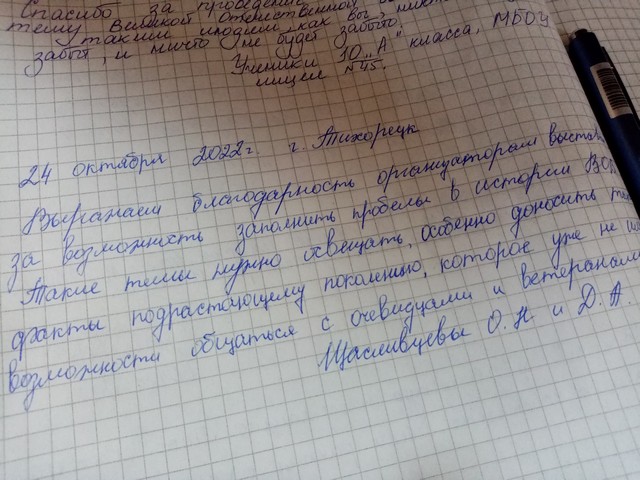 Спасибо за проведение
тему Великой Отечественной
таким людям как вы, никто
забыт, и ничто не будет забыто
Ученики 10 „А" класса, МБОУ
лицея №45.
24 октября 2022г. г. Тихорецк
Выражаем благодарность организаторам
за возможность заполнить пробелы в истории
Такие темы нужно освещать, особенно доносить
факты подрастающему поколению, которое уже не
возможности общаться с очевидцами и ветеранами
Щасливцевы О.Н. и Д.А.